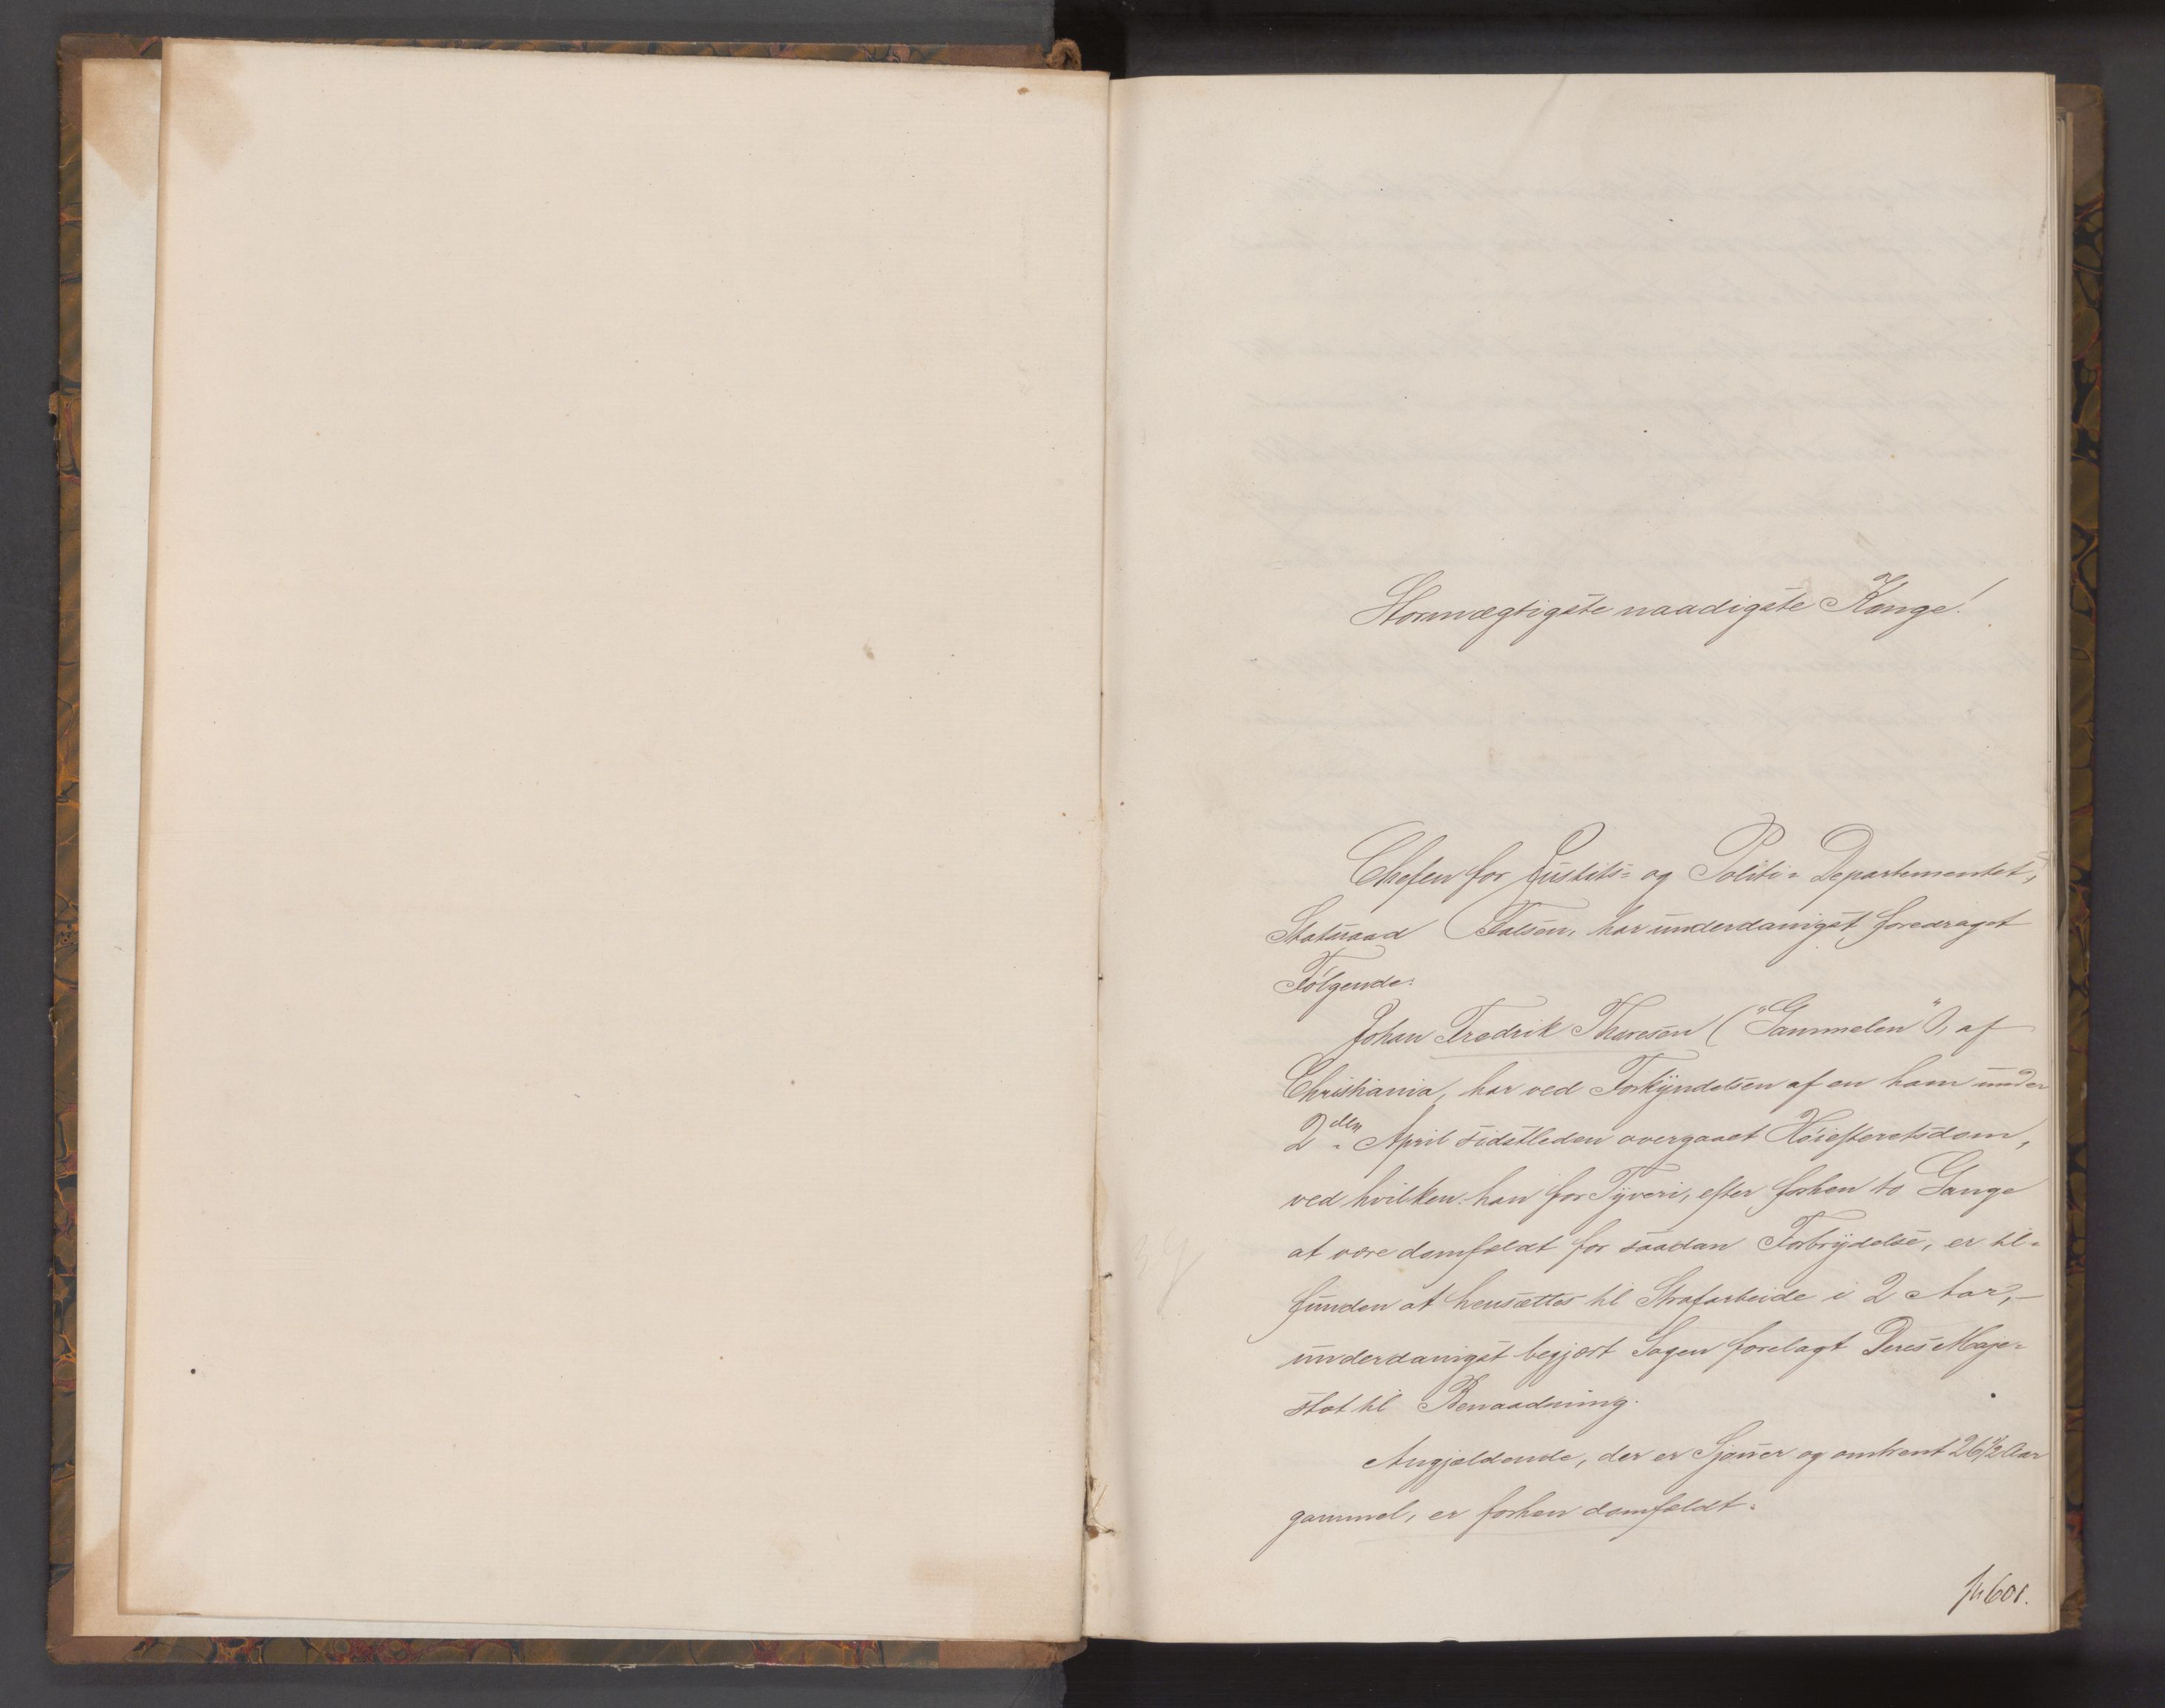 Stormægtigste naadigste Konge!
Chefen for Justits- og Politi-Departementet,
Statsraad Falsen, har underdanigst foredraget
Følgende:
Johan Fredrik Thoresen („Gammelen"), af
Christiania, har ved Forkyndelsen af en ham under
2den April sidstleden overgaaet Høiesteretsdom,
ved hvilken han for Tyveri, efter forhen to Gange
at være domfældt for saadan Forbrydelse, er til-
funden at hensættes til Strafarbeide i 2 Aar,-
underdanigst begjært Sagen forelagt Deres Maje-
stæt til Benaadning.
Angjældende, der er Sjouer og omtrent 26 1/2 Aar
gammel, er forhen domfældt:
601.